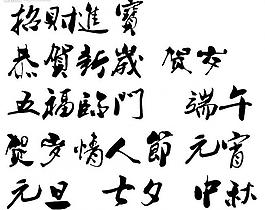 招財進寶
恭賀新歲 贺岁
五福臨門 端午
贺岁情人節 元宵
元旦 七夕 中秋